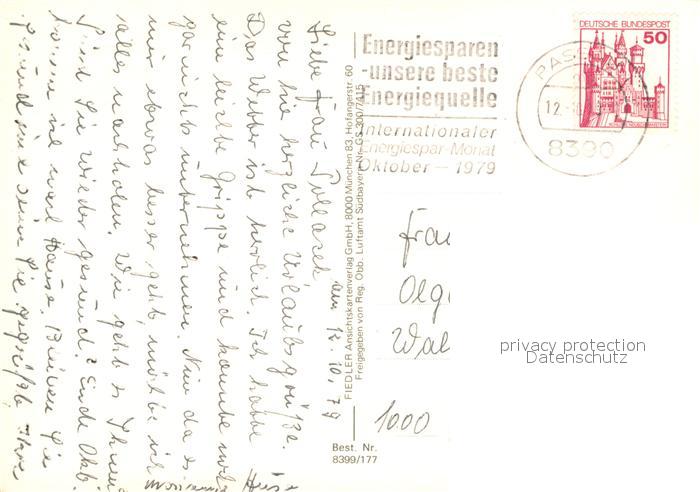 am 12. 10. 79
Liebe Frau
von hie herzliche Urlaubsgrüße.
Das Wetter ist herrlich. Ich hatte
eine leichte Grippe und konnte
gar nichts unternehmen. Nun da es
mir etwas besser geht, möchte ich
alles nachholen. Wie geht es Ihnen
Sind Sie wieder gesund? Ende Okt.
komme ich nach Hause. Bleiben Sie
gesund und seien Sie gegrüßt Ihre
FIEDLER Ansichtskartenverlag GmbH, 8000 München 83, Hofangerstr. 60
Freigegeben von Reg. Obb. Luftamt Südbayern Nr. GS 300/7415
Energiesparen
-unsere beste
Energiequelle
Internationaler
Energiespar-Monat
Oktober – 1979
PASSAU
12.
8390
DEUTSCHE BUNDESPOST
50
Frau
Olg
Wal
1000
privacy protection
Datenschutz
Best. Nr.
8399/177